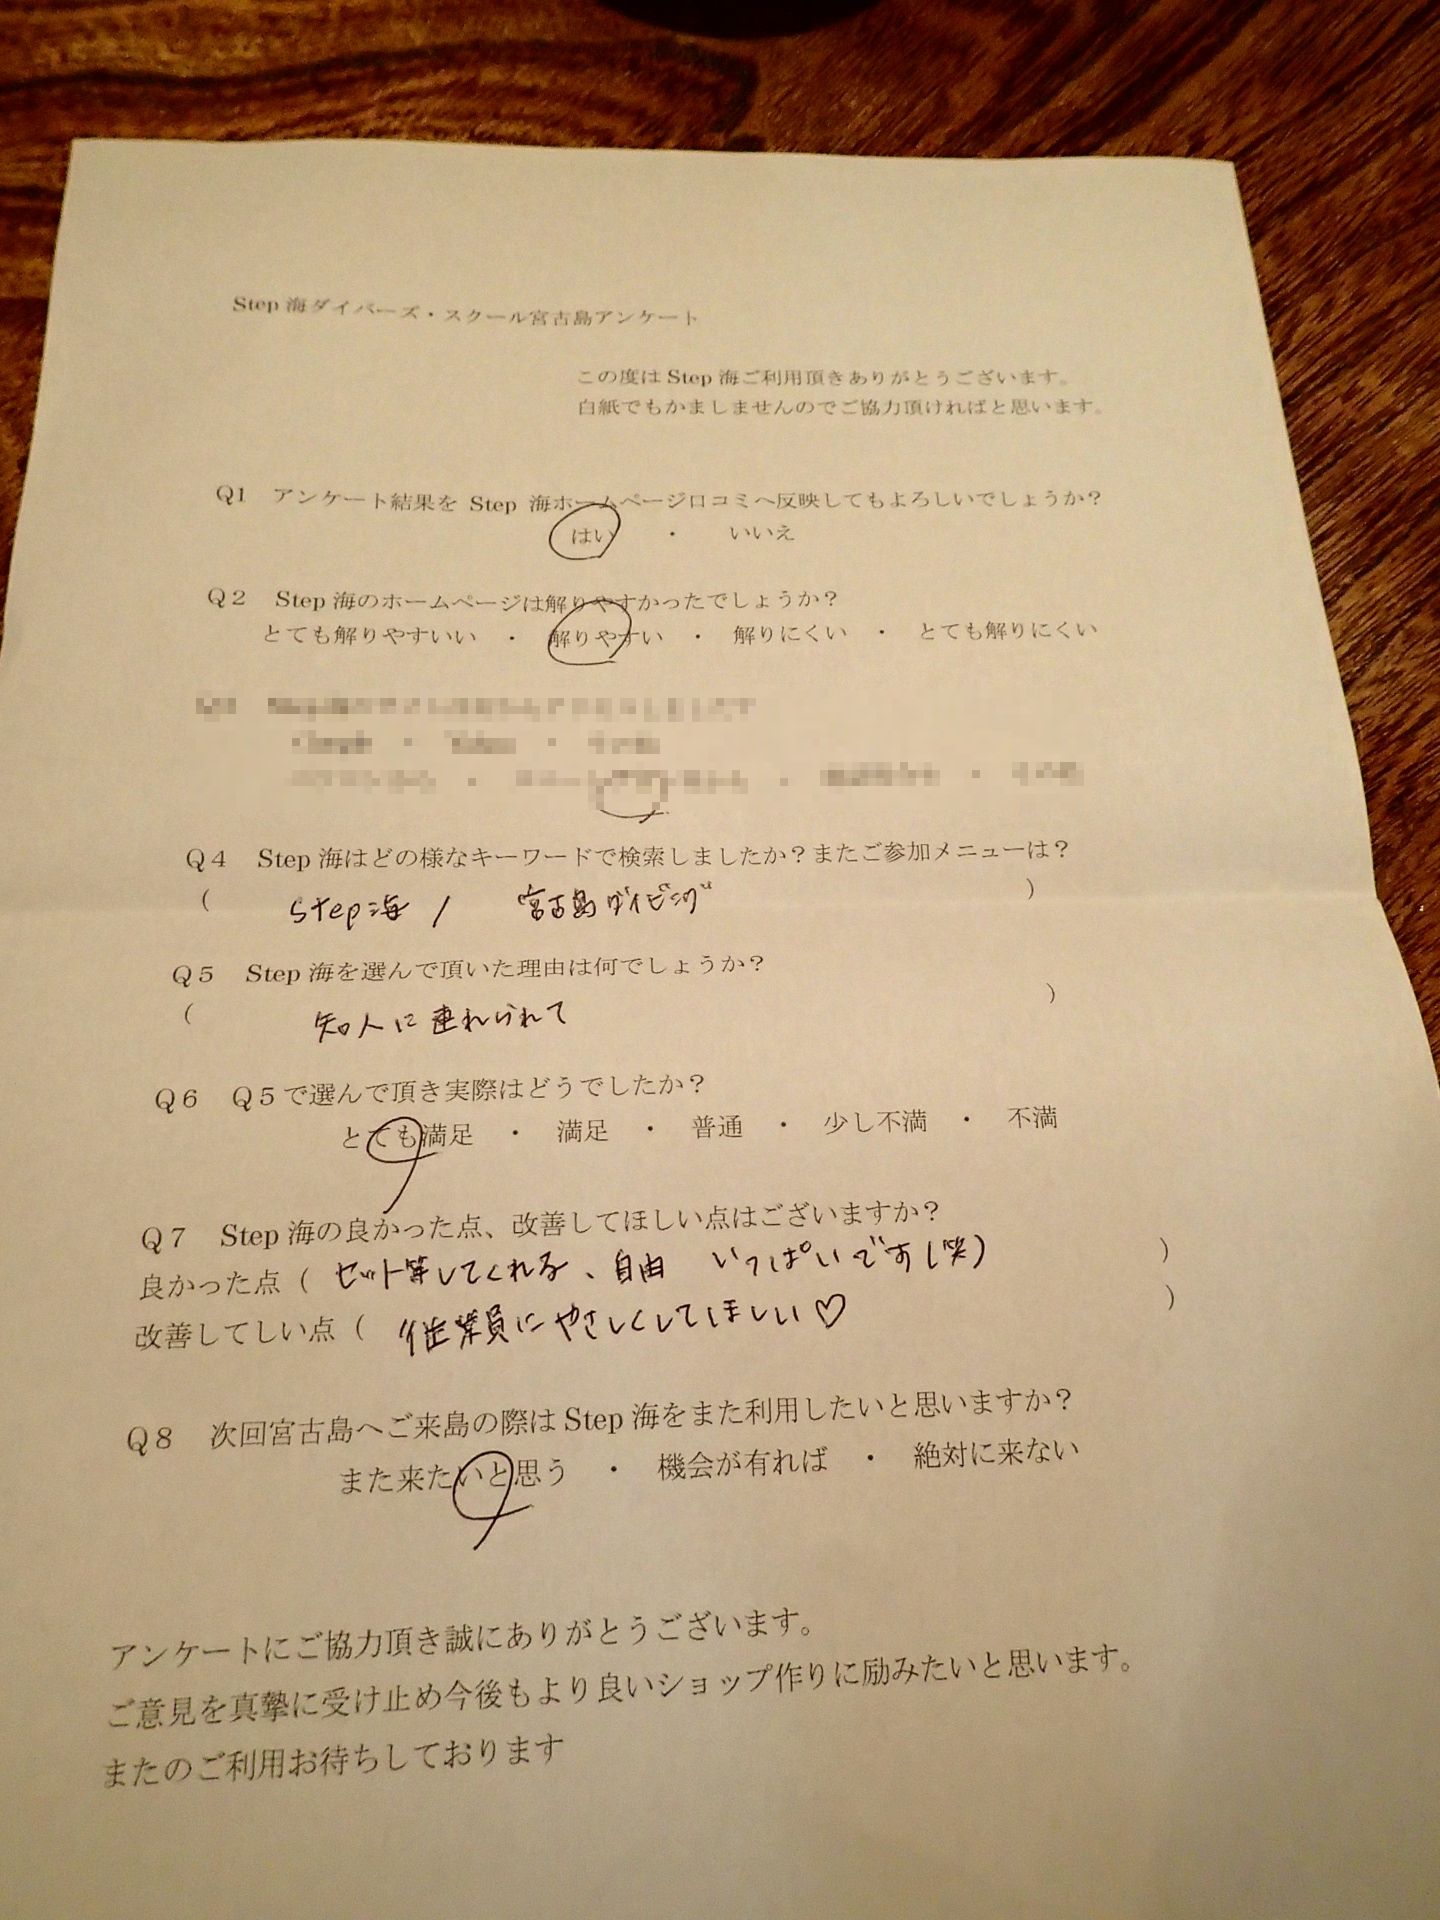 Step 海ダイバーズ・スクール宮古島アンケート
この度は Step 海ご利用頂きありがとうございます。
白紙でもかましませんのでご協力頂ければと思います。
Q1 アンケート結果を Step 海ホームページ口コミへ反映してもよろしいでしょうか?
はい ・ いいえ
Q2 Step 海のホームページは解りやすかったでしょうか?
とても解りやすいい ・ 解りやすい ・ 解りにくい ・ とても解りにくい
Q4 Step 海はどの様なキーワードで検索しましたか?またご参加メニューは?
( step海 / 宮古島ダイビング )
Q5 Step 海を選んで頂いた理由は何でしょうか?
( 知人に連れられて )
Q6 Q5で選んで頂き実際はどうでしたか?
とても満足 ・ 満足 ・ 普通 ・ 少し不満 ・ 不満
Q7 Step 海の良かった点、改善してほしい点はございますか?
良かった点 ( セット等してくれる、自由 いっぱいです(笑) )
改善してしい点 ( 従業員にやさしくしてほしい♡ )
Q8 次回宮古島へご来島の際は Step 海をまた利用したいと思いますか?
また来たいと思う ・ 機会が有れば ・ 絶対に来ない
アンケートにご協力頂き誠にありがとうございます。
ご意見を真摯に受け止め今後もより良いショップ作りに励みたいと思います。
またのご利用お待ちしております